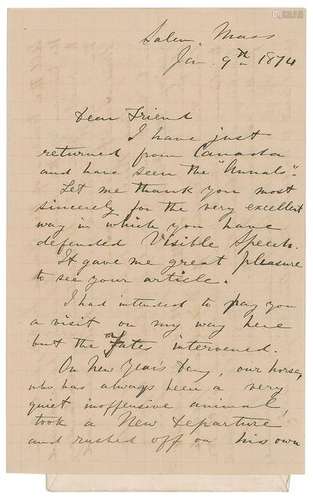 Salem, Mass
Jan. 9th 1874
Dear Friend
I have just
returned from Canada
and have seen the "Annals".
Let me thank you most
sincerely for the very excellent
way in which you have
defended Visible Speech.
It gave me great pleasure
to see your article.
I had intended to pay you
a visit on my way here
but the Fates intervened.
On New Year's Day, our horse,
who has always been a very
quiet inoffensive animal,
took a New Departure
and rushed off on his own